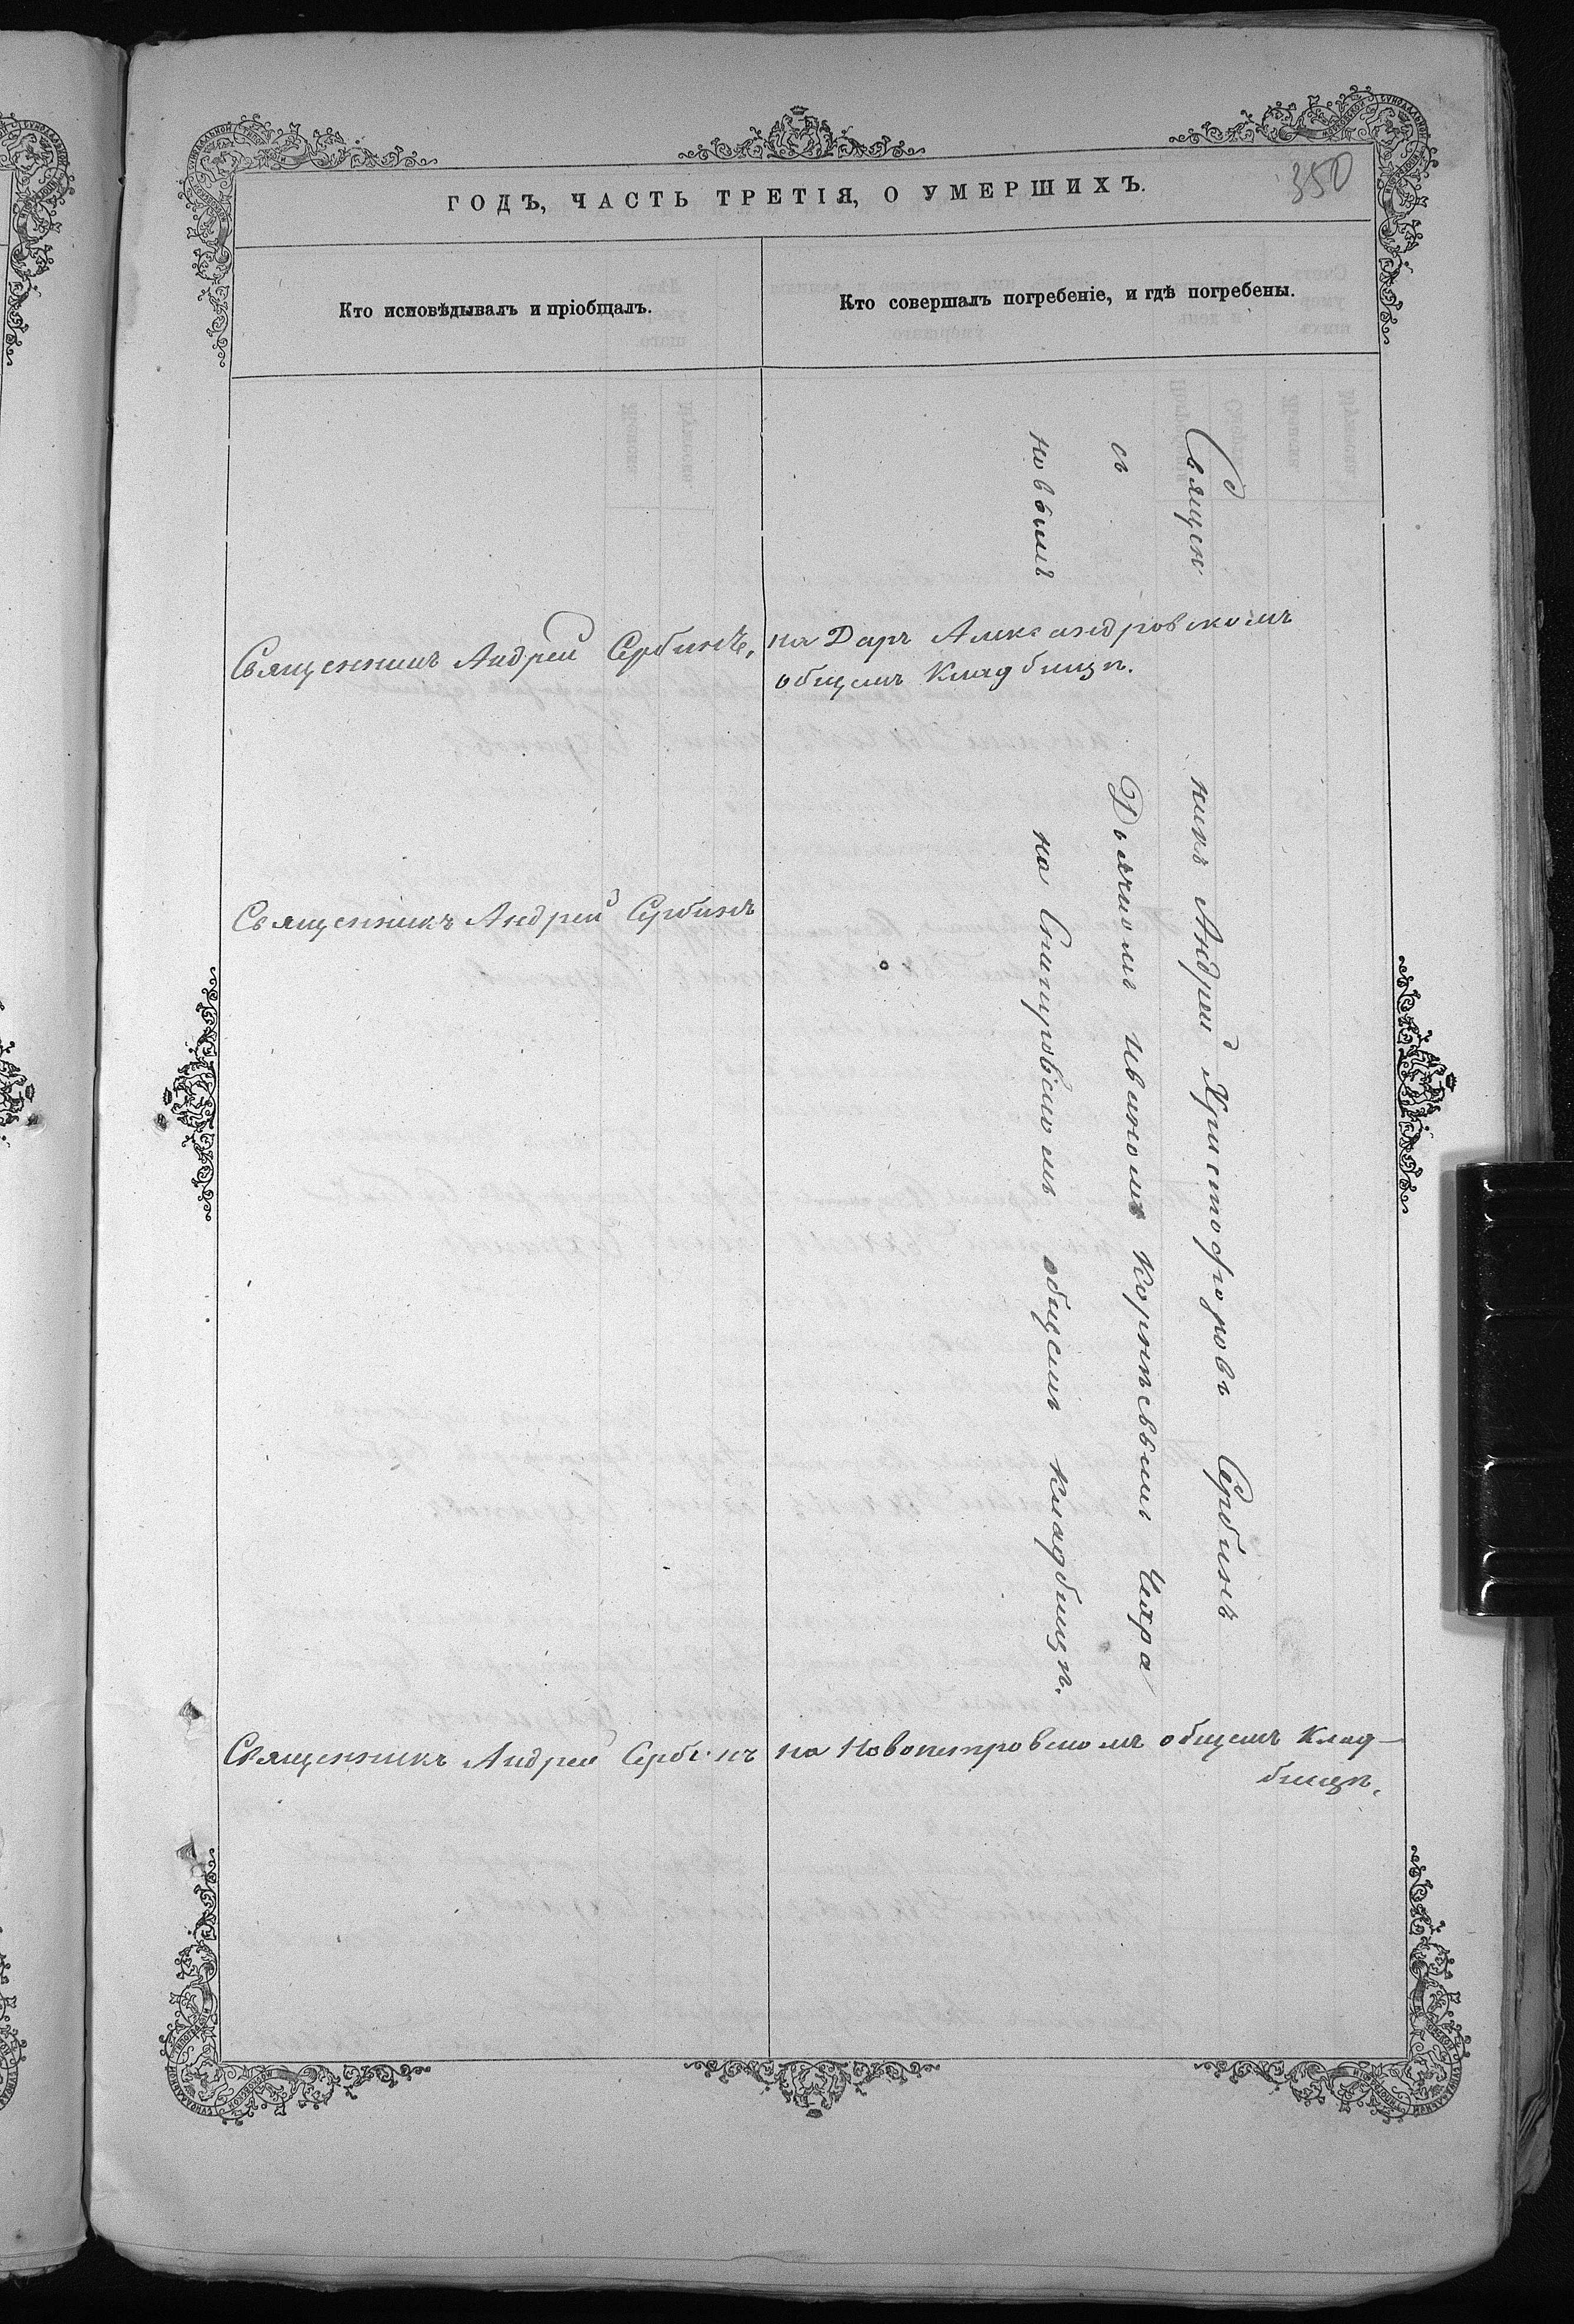 350
ГОДЪ, ЧАСТЬ ТРЕТІЯ, О УМЕРШИХЪ.
Кто исповѣдывалъ и пріобщалъ.
Кто совершалъ погребеніе, и гдѣ погребены.
Священникъ Андрей Сербинъ,
на Дарѣ Александровскомъ
общемъ Кладбищѣ.
Священникъ Андрей Сербинъ
Священникъ Андрей Христофоровъ Сербинъ
съ Дьячкомъ Иваномъ Корнѣевымъ Чахра
новымъ на общемъ кладбищѣ.
Священникъ Андрей Сербинъ
на Новопетровскомъ общемъ Клад-
бищѣ.